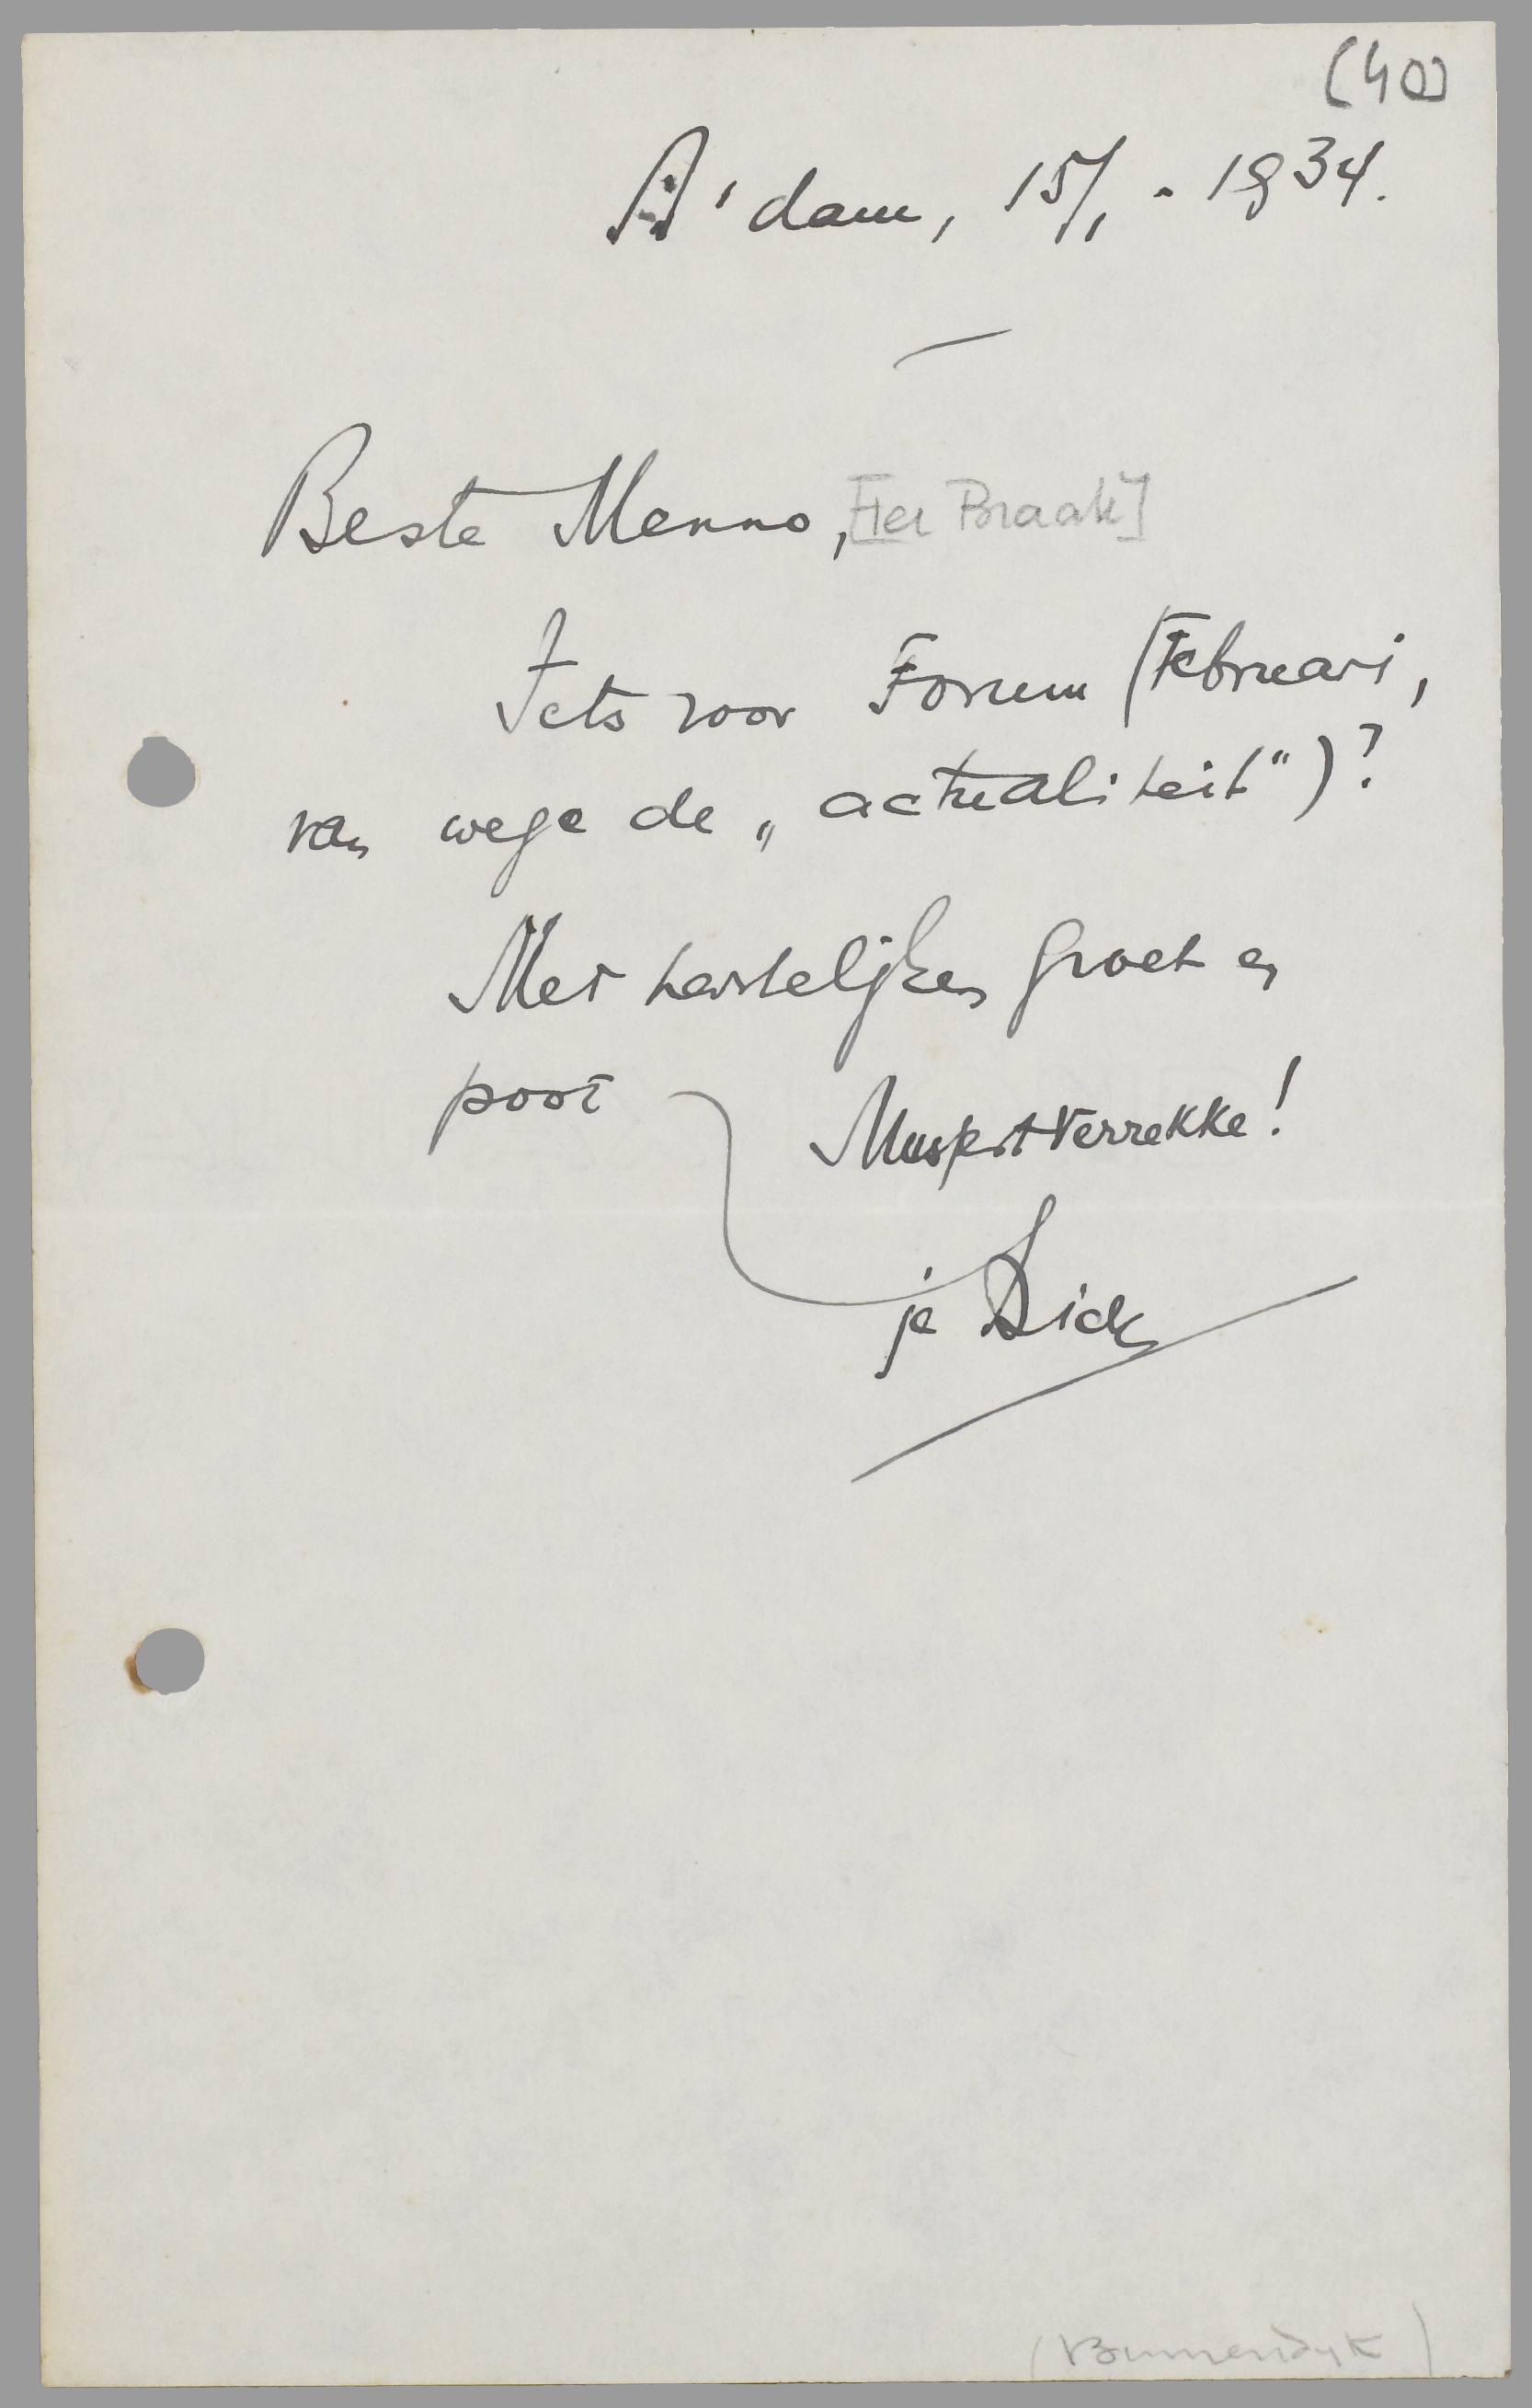 (40)
A'dam, 15/1 - 1934.
Beste Menno, [ter Braak]
Iets voor Forum (Februari,
van wege de „actualiteit")?
Met hartelijken groet en
poot
Mussert verrekke!
je Dick
(Binnendijk)